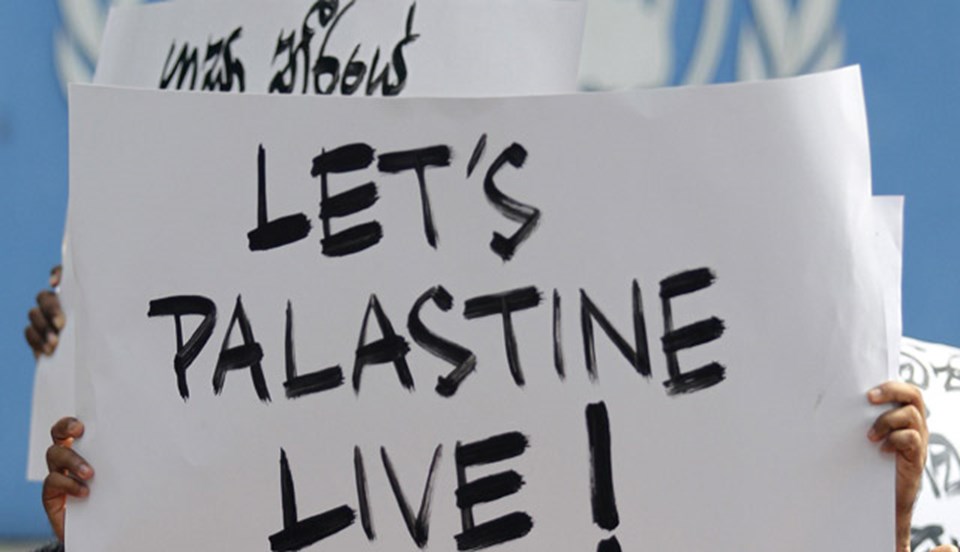 LET'S
PALASTINE
LIVE!